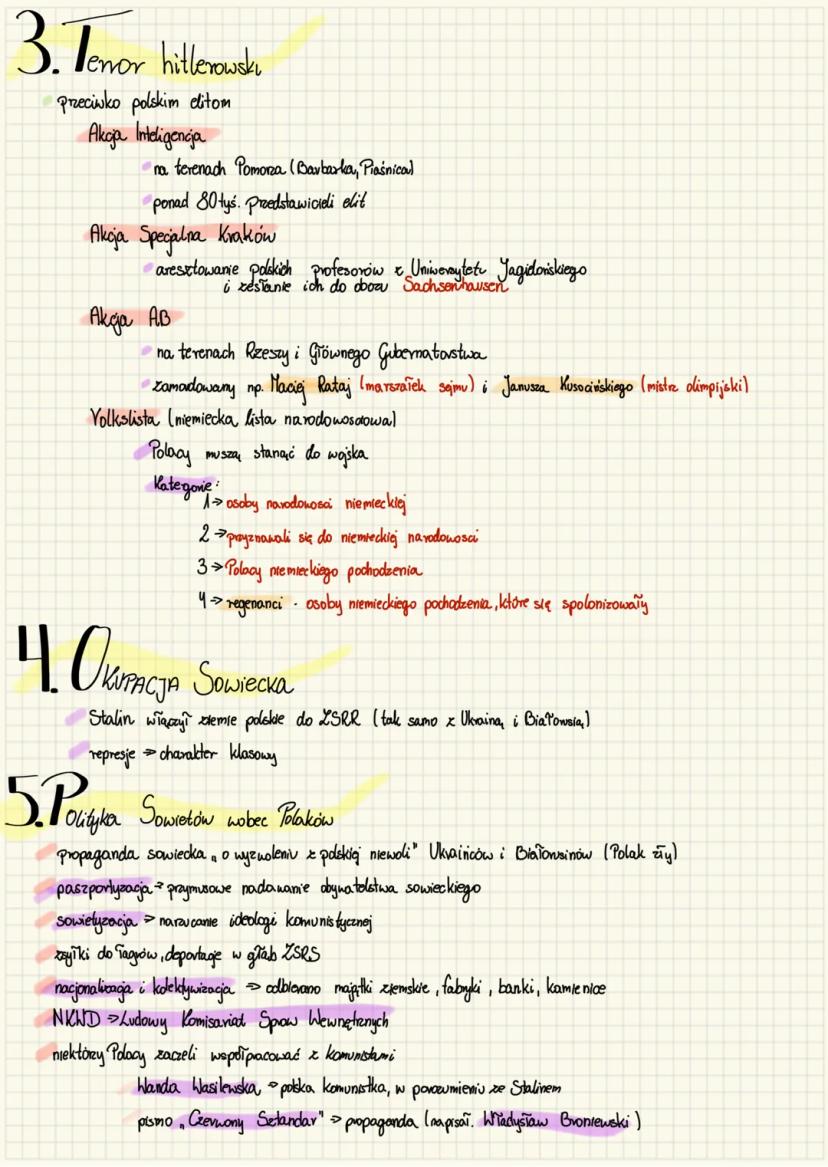 3. Terror hitlerowski
przeciwko polskim elitom
Akcja Inteligencja
na terenach Pomorza (Barbarka, Piaśnica)
ponad 80 tyś. przedstawicieli elit
Akcja Specjalna Kraków
aresztowanie polskich profesorów z Uniwersytetu Jagielońskiego
i zesłanie ich do obozu Sachsenhausen
Akcja AB
na terenach Rzeszy i Głównego Gubernatorstwa
zamordowany np. Maciej Rataj (marszałek sejmu) i Janusza Kusocińskiego (mistrz olimpijski)
Volkslista (niemiecka lista narodowosciowa)
Polacy muszą stanąć do wojska
Kategorie:
1 → osoby narodowosci niemieckiej
2 → przyznawali się do niemieckiej narodowosci
3 → Polacy niemieckiego pochodzenia
4 → regenanci - osoby niemieckiego pochodzenia, które się spolonizowały
4. Okupacja Sowiecka
Stalin włączył ziemie polskie do ZSRR (tak samo z Ukrainą i Białorusią)
represje ⇒ charakter klasowy
5. Polityka Sowietów wobec Polaków
propaganda sowiecka „o wyzwoleniu z polskiej niewoli" Ukraińców i Białorusinów (Polak zły)
paszportyzacja ⇒ przymusowe nadawanie obywatelstwa sowieckiego
sowietyzacja ⇒ narzucanie ideologi komunistycznej
zsyłki do łagrów, deportacje w głąb ZSRS
nacjonalizacja i kolektywizacja ⇒ odbierano majątki ziemskie, fabryki, banki, kamienice
NKWD ⇒ Ludowy Komisariat Spraw Wewnętrznych
niektórzy Polacy zaczeli współpracować z komunistami
Wanda Wasilewska ⇒ polska komunistka, w porozumieniu ze Stalinem
pismo „Czerwony Sztandar" ⇒ propaganda (napisał. Władysław Broniewski)